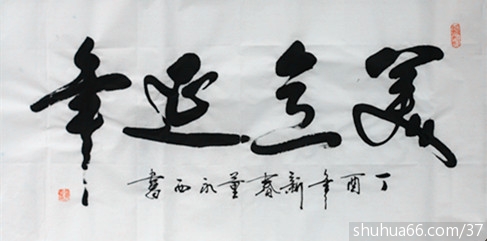 美意延年
丁酉年新春董永西書
shuhua66.com/37